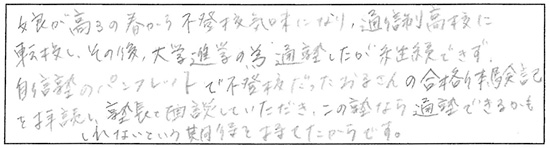 娘が高3の春から不登校気味になり，通信制高校に
転校し，その後，大学進学の為通塾したが永続できず．
自信塾のパンフレットで不登校だったお子さんの合格体験記
を拝読し，塾長と面談していただき，この塾なら通塾できるかも
しれないという期待を持てたからです。